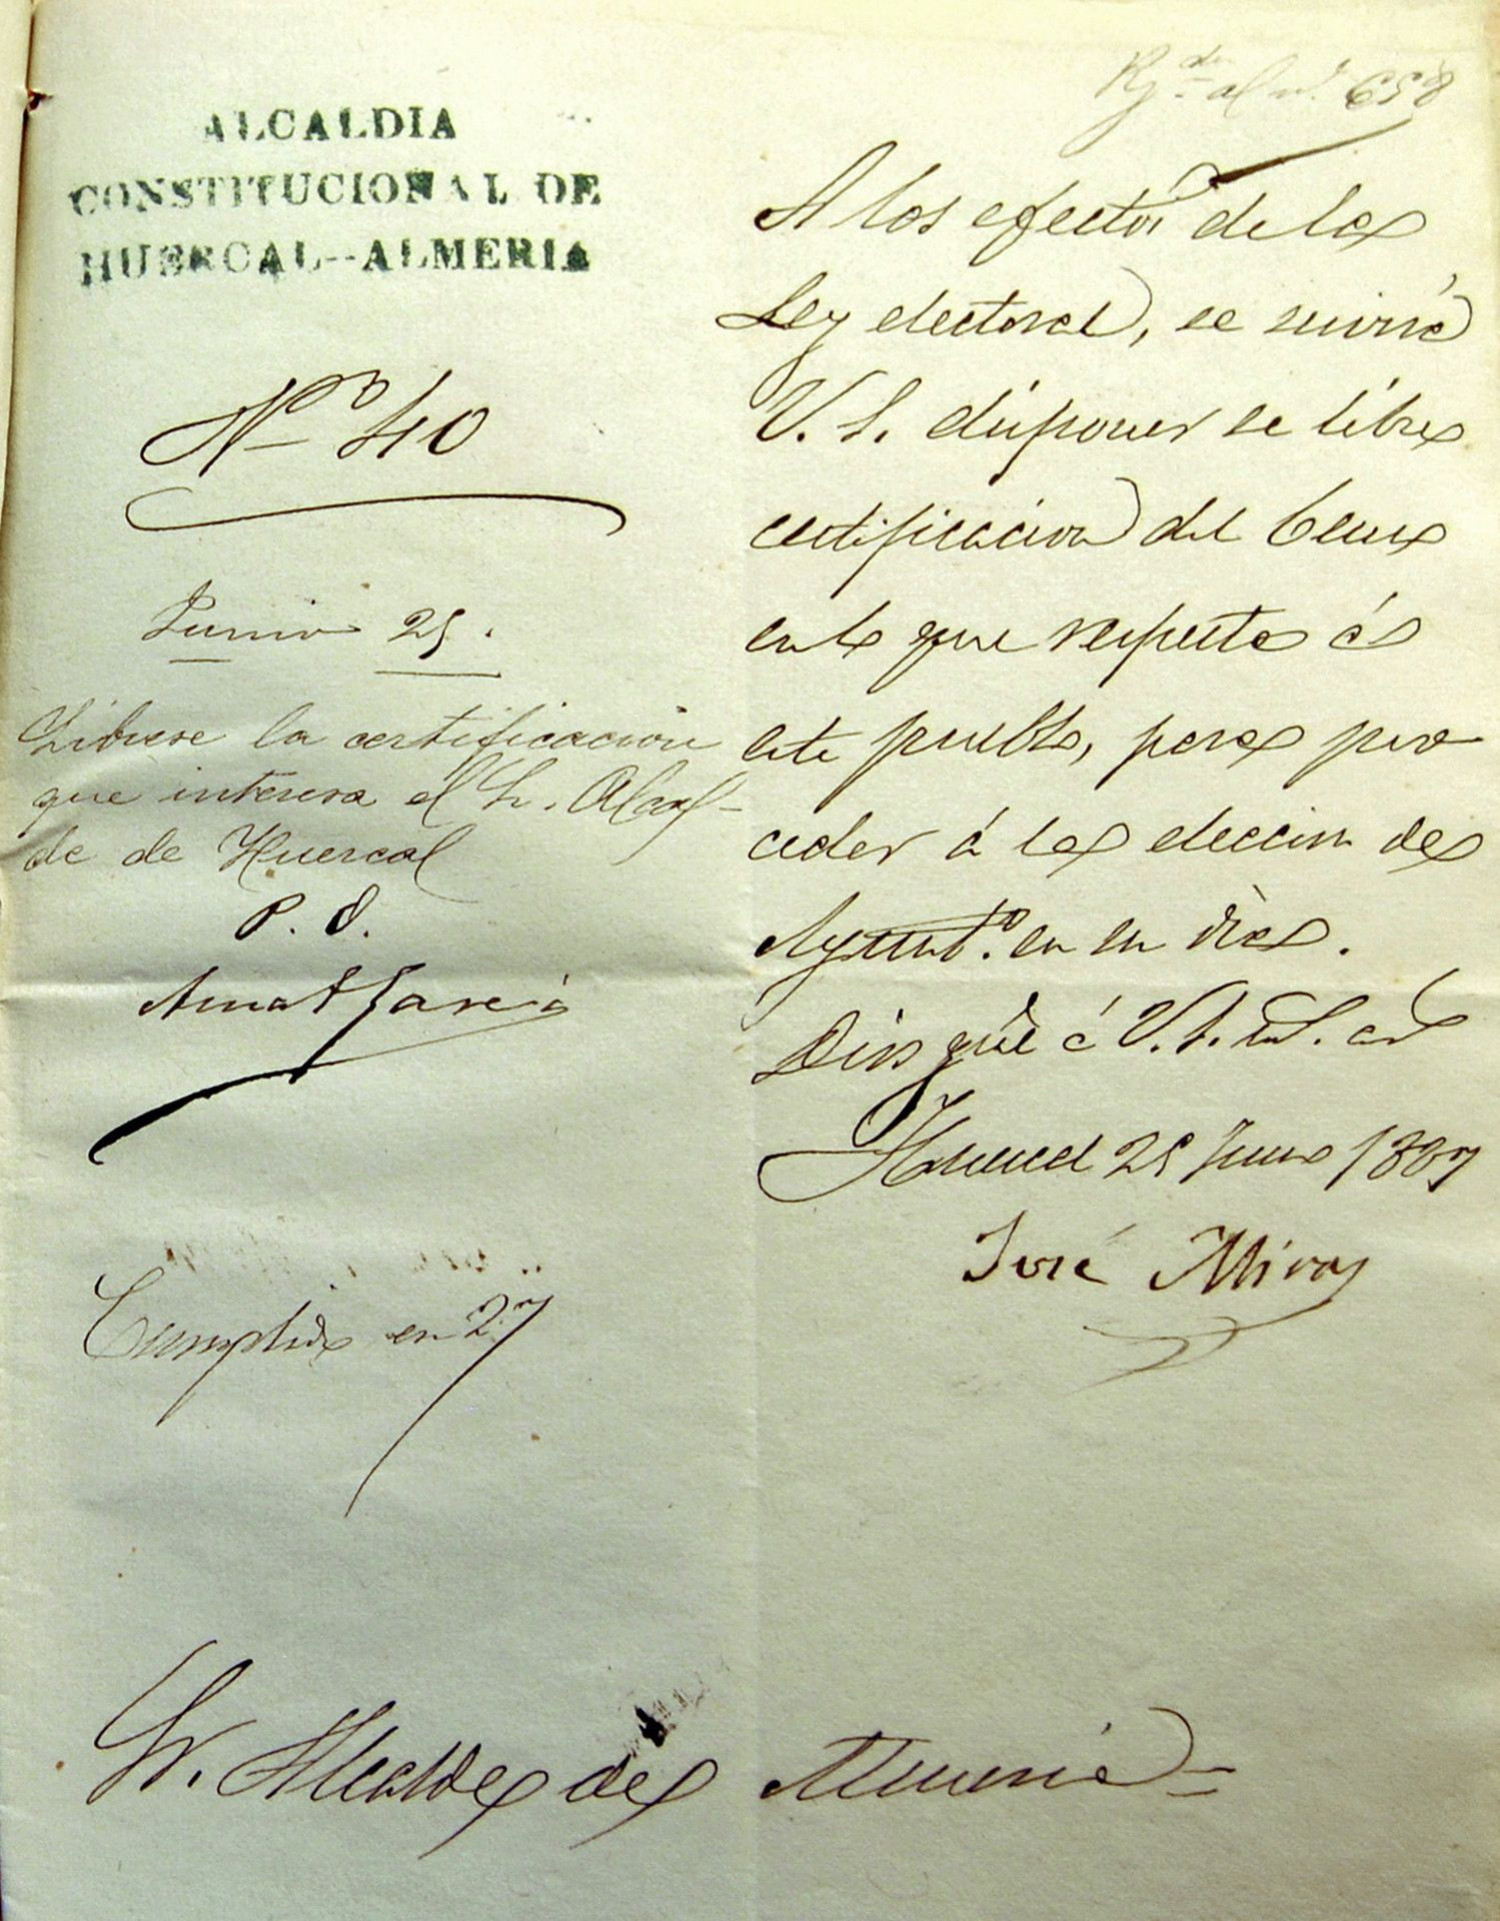 Rg.do al n.º 658
ALCALDIA
CONSTITUCIONAL DE
HUERCAL--ALMERIA
Nº 40
Junio 25.
Líbrese la certificacion
que interesa el Sr. Alcal-
de de Huercal
P. O.
Amat Garcia
Cumplido en 27
A los efectos de la
Ley electoral, se servirá
V. S. disponer se libre
certificacion del Censo
en lo que respecta á
este pueblo, para pro
ceder á la eleccion de
Ayunt.º en su dia.
Dios güe á V. S. m. a.
Huercal 25 Junio 1887
José Miras
Sr. Alcalde de Almeria